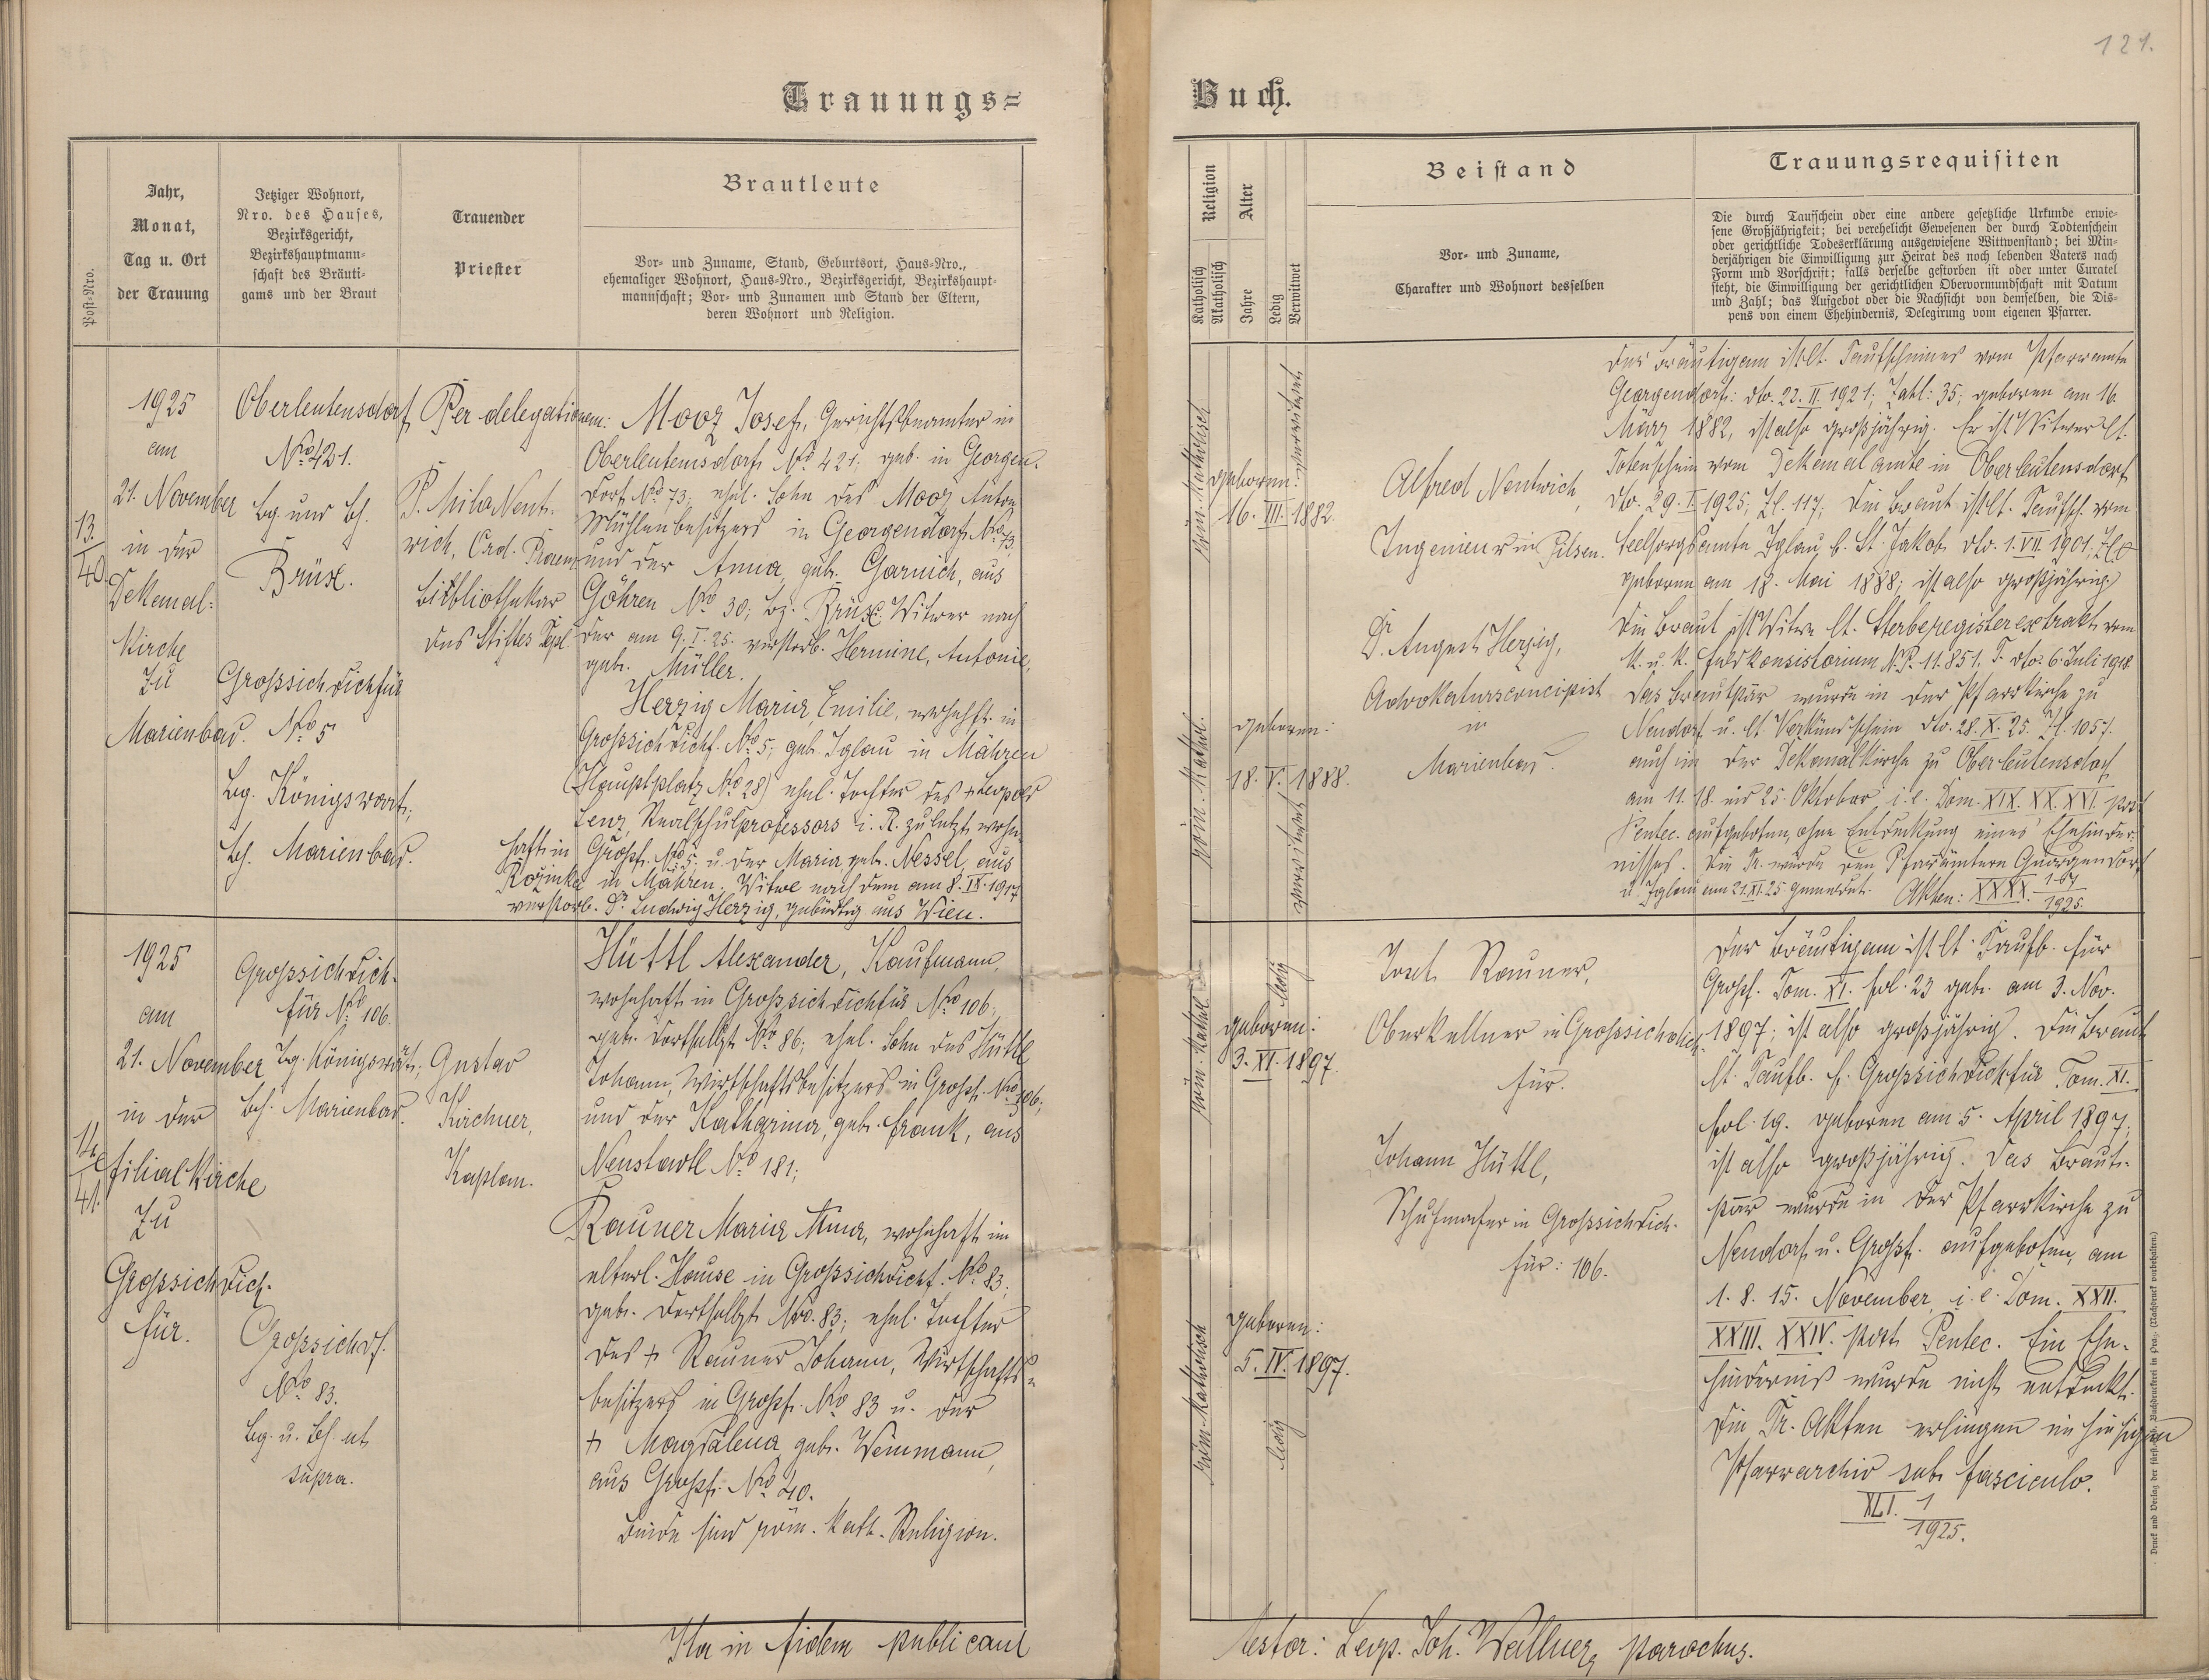 121.
Trauungs=
Buch.
Post-Nro.
Jahr,
Monat,
Tag u. Ort
der Trauung
Jetziger Wohnort,
Nro. des Hauses,
Bezirksgericht,
Bezirkshauptmann-
schaft des Bräuti-
gams und der Braut
Trauender
Priester
Brautleute
Vor- und Zuname, Stand, Geburtsort, Haus-Nro.,
ehemaliger Wohnort, Haus-Nro., Bezirksgericht, Bezirkshaupt-
mannschaft; Vor- und Zunamen und Stand der Eltern,
deren Wohnort und Religion.
Religion
Katholisch
Akatholisch
Alter
Jahre
Ledig
Verwitwet
Beistand
Vor- und Zuname,
Charakter und Wohnort desselben
Trauungsrequisiten
Die durch Taufschein oder eine andere gesetzliche Urkunde erwie-
sene Großjährigkeit; bei verehelicht Gewesenen der durch Todtenschein
oder gerichtliche Todeserklärung ausgewiesene Wittwenstand; bei Min-
derjährigen die Einwilligung zur Heirat des noch lebenden Vaters nach
Form und Vorschrift; falls derselbe gestorben ist oder unter Curatel
steht, die Einwilligung der gerichtlichen Obervormundschaft mit Datum
und Zahl; das Aufgebot oder die Nachsicht von demselben, die Dis-
pens von einem Ehehindernis, Delegirung vom eigenen Pfarrer.
13.
40.
1925
am
21. November
in der
Dekanal-
Kirche
zu
Marienbad.
Oberleutensdorf
No 421.
bg. und bh.
Brüx.
Grossichdichfür
No 5
bg. Königswart;
bh. Marienbad.
Per delegationem:
P. Milo Nent-
wich, Ord. Praem.
Bibliothekar
des Stiftes Tepl
Mooz Josef, Gerichtsbeamter in
Oberleutensdorf No 421; geb. in Georgen-
dorf No 73; ehel. Sohn des Mooz Anton
Mühlenbesitzers in Georgendorf No 73.
und der Anna, geb. Garnich, aus
Göhren No 30; bz. Brüx; Witwer nach
der am 9. I. 25. verstorb. Hermine, Antonie,
geb. Müller.
Herzig Maria, Emilie, wohnhft. in
Grossichdichf. No 5; geb. Iglau in Mähren
(Hauptplatz No 28) ehel. Tochter des + Leopold
Lenz, Realschulprofessors i. R. zuletzt wohn-
haft in Großs. No 5. u. der Maria geb. Nessel, aus
Rožinka in Mähren. Witwe nach dem am 8. IX. 1917
verstorb. Dr. Ludwig Herzig, gebürtig aus Wien.
röm. katholisch
geboren:
16. III. 1882.
verwitwet
röm. kathol.
geboren:
18. V. 1888.
verwitwet
Alfred Nentwich,
Ingenieur in Pilsen.
Dr. August Herzig,
Advokaturskoncipist
in
Marienbad.
Der Bräutigam ist lt. Taufscheines vom Pfarramte
Georgendorf: dto. 22. II. 1921; Zahl: 35; geboren am 16.
März 1882, ist also großjährig. Er ist Witwer lt.
Totenschein vom Dekanalamte in Oberleutensdorf
dto. 29. I. 1925; Zl. 117; Die Braut ist lt. Taufsch. vom
Seelsorgsamte Iglau, b. St. Jakob dto. 1. VII. 1901;
geboren am 18. Mai 1888; ist also großjährig.
Die Braut ist Witwe lt. Sterberegisterextrakt vom
k. u. k. Feldkonsistorium N. P. 11.851. F. dto. 6. Juli 1918.
Das Brautpaar wurde in der Pfarrkirche zu
Neudorf u. lt. Verkündschein dto. 28. X. 25. Zl. 1057.
auch in der Dekanalkirche zu Oberleutensdorf
am 11. 18. und 25. Oktober, i. e. Dom. XIX. XX. XXI. post
Pentec. aufgeboten, ohne Entdeckung eines Ehehinder-
nisses. Die Tr. wurde den Pfarrämtern Georgendorf
u. Iglau am 21. XI. 25 gemeldet. Akten: XXXX. 1925.
14.
41.
1925
am
21. November
in der
Filialkirche
zu
Grossichdich-
für.
Grossichdich-
für No 106.
bg. Königswart;
bh. Marienbad.
Grossichdf.
No 83.
bg. u. bh. ut
supra.
Gustav
Kirchner,
Kaplan.
Hüttl Alexander, Kaufmann,
wohnhaft in Großsichdichfür No 106.
geb. dortselbst No 86; ehel. Sohn des Hüttl
Johann, Wirtschaftsbesitzers in Großs. No 106;
und der Katharina, geb. Frank, aus
Neustadtl No 181;
Rauner Maria Anna, wohnhaft im
elterl. Hause in Großsichdichf. No 83;
geb. dortselbst No. 83; ehel. Tochter
des + Rauner Johann, Wirtschafts-
besitzers in Großs. No 83 u. der
+ Magdalena geb. Weinmann,
aus Großs. No 40.
Beide sind röm. kath. Religion.
röm. kathol.
geboren:
3. XI. 1897.
ledig
röm. katholisch
geboren:
5. IV. 1897.
ledig
Josef Rauner,
Oberkellner in Grossichdich-
für.
Johann Hüttl,
Schuhmacher in Grossichdich-
für: 106.
Der Bräutigam ist lt. Taufb. für
Großs. Tom. XI. fol. 23 geb. am 3. Nov.
1897; ist also großjährig. Die Braut
lt. Taufb. f. Grossichdichfür Tom. XI.
fol. 19. geboren am 5. April 1897;
ist also großjährig. Das Braut-
paar wurde in der Pfarrkirche zu
Neudorf u. Großs. aufgeboten, am
1. 8. 15. November, i. e. Dom. XXII.
XXIII. XXIV. post Pentec. Ein Ehe-
hindernis wurde nicht entdeckt.
Die Tr. Akten erliegen im hiesigen
Pfarrarchiv sub fasciculo.
XLI. 1
1925.
Ita in fidem publicam
testor: Leop. Joh. Wallner, parochus.